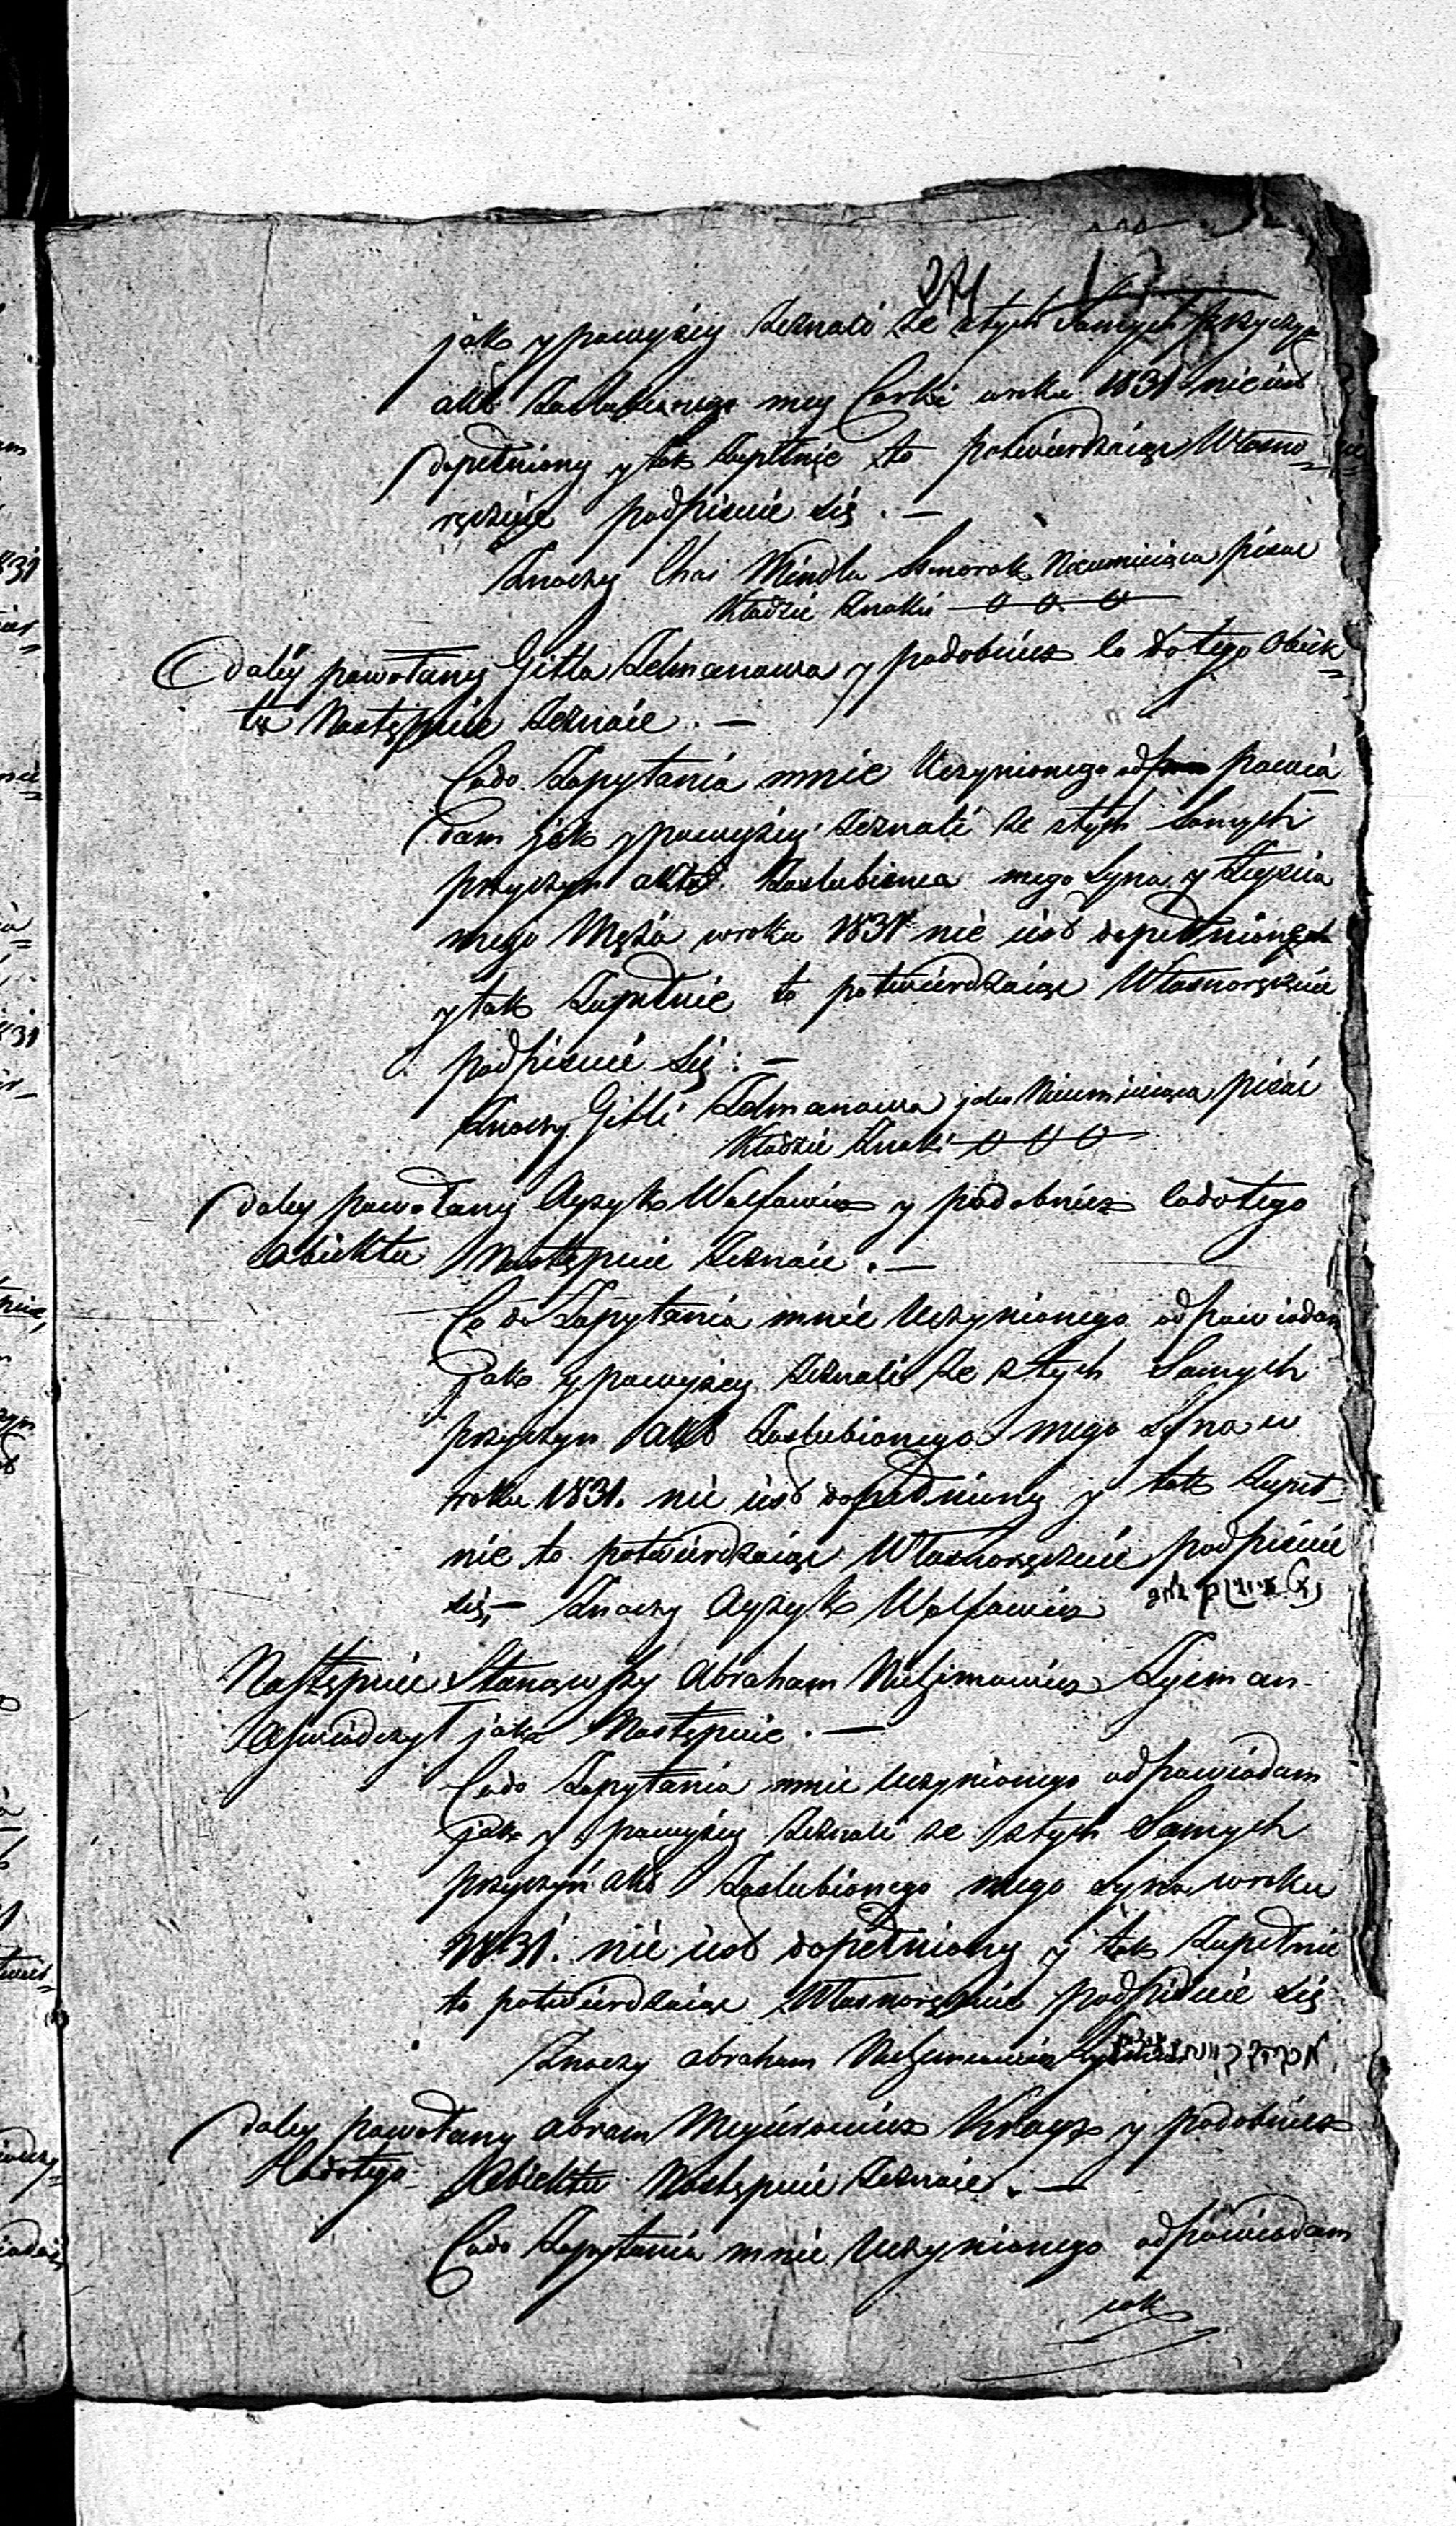 271
jak y powyżey zeznali że z tych samych przyczyn
akt zaslubionego mey Corki w roku 1831 nie iest
dopełniony y tak zupełnie to potwierdzaiąc Własno=
ręcznie podpisuie się. —
Znaczy Chai Mindla nieumieiąca pisac
kładzie znaki o o o
daley powołany Gitla Zelmanowa y podobniez co do tego Obiek=
tu Następnie zeznaie. —
Co do Zapytania mnie Uczynionego odpowia
dam jak y powyżey zeznali że z tych samych
przyczyn akt Zaslubienia mego Syna y Zięcia
mego Męża w roku 1831 nie iest dopełniony
y tak zupełnie to potwierdzaiąc Własnoręcznie
podpisuie się: —
Znaczy Gitli Zelmanowa jako Nieumieiąca pisac
kładzie znaki o o o
daley powołany Ayzyk Wolfowicz y podobniez co do tego
obiektu Następnie zeznaie. —
Co do Zapytania mnie Uczynionego odpowiadam
Jak y powyżey zeznali że z tych Samych
przyczyn akt Zaslubionego mego Syna w
roku 1831. nie iest dopełniony y tak Zupeł=
nie to potwierdzaiąc Własnoręcznie podpisuie
się, — Znaczy Ayzyk Wolfowicz
Następnie Stanąwszy Abraham Zyciman
Oswiadczył jako Następnie. —
Co do Zapytania mnie Uczynionego odpowiadam
jak y powyżey zeznali że z tych Samych
przyczyn akt Zaslubionego mego Syna w roku
1831. nie iest dopełniony y tak Zupełnie
to potwierdzaiąc Własnoręcznie podpisuie się
Znaczy Abraham
daley powołany Abram Meyerowicz y podobniez
Co do tego Obiektu Następnie zeznaie. —
Co do Zapytania mnie Uczynionego odpowiadam
jak